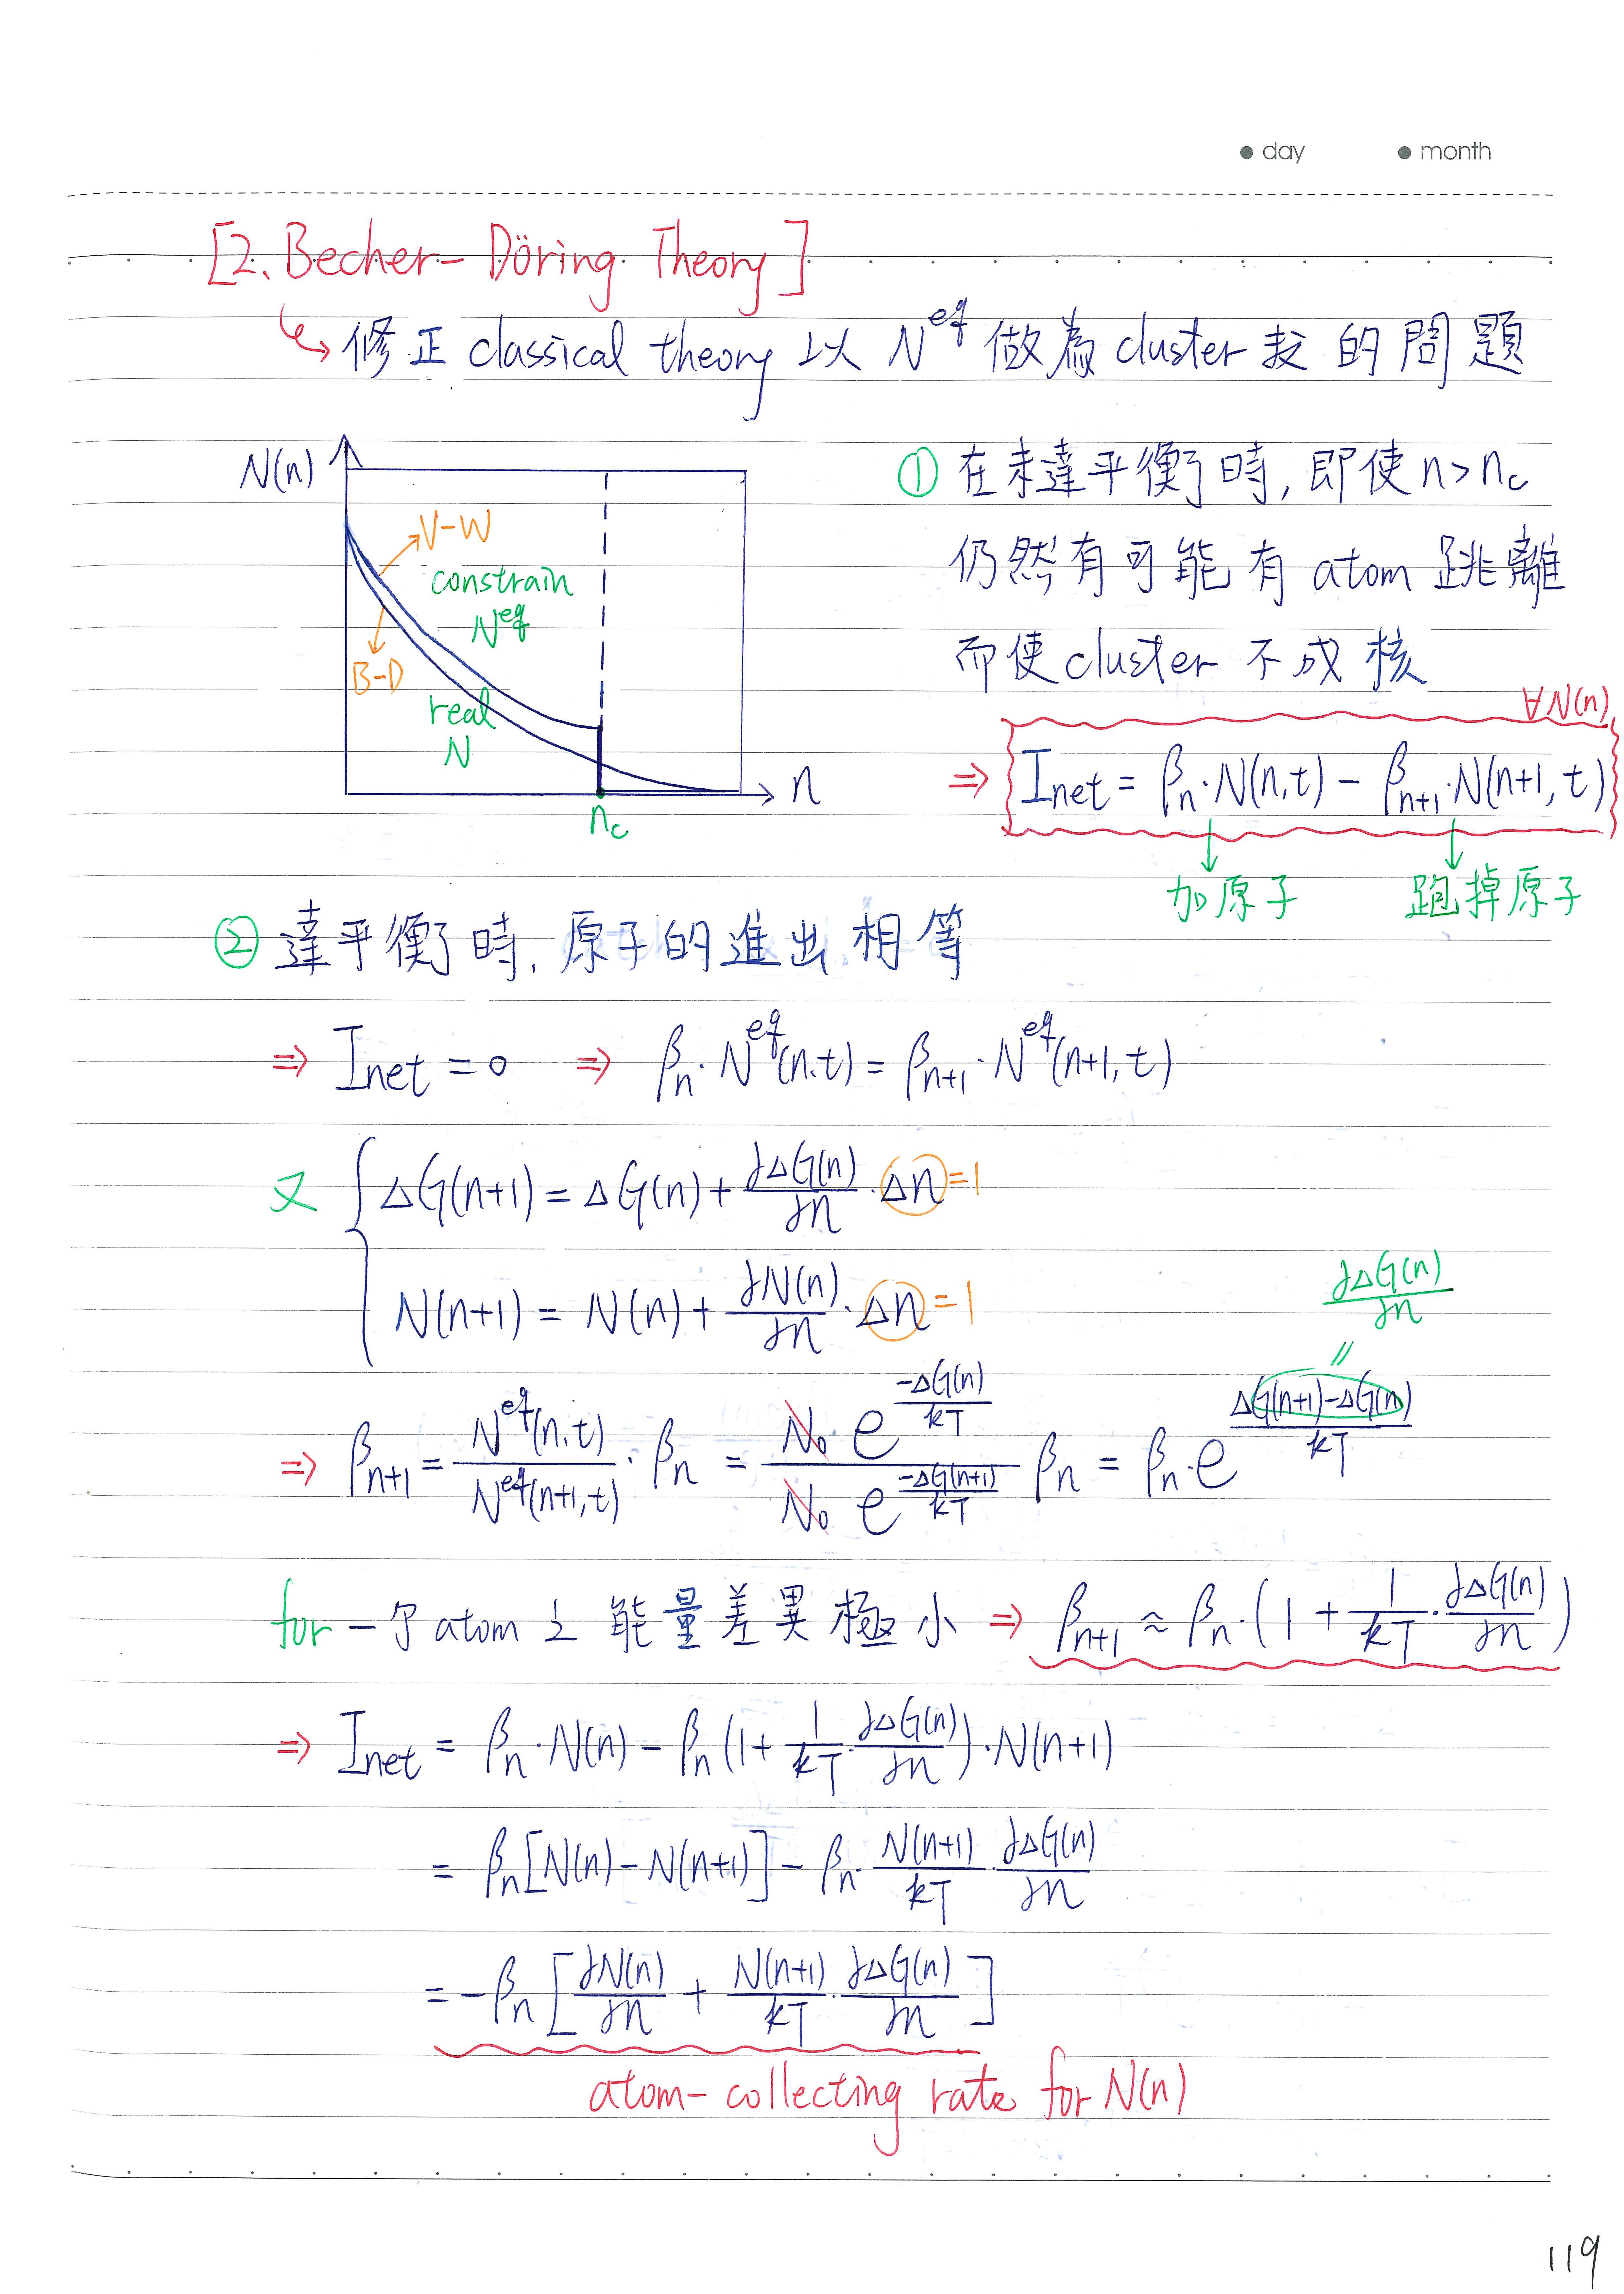 ● day ● month
[2. Becher-Döring Theory]
↳ 修正 classical theory 以 N^eq 做為 cluster 數 的問題
N(n)
V-W
constrain
N^eq
B-D
real
N
n
n_c
① 在未達平衡時, 即使 n > n_c
仍然有可能有 atom 跳離
而使 cluster 不成核
∀N(n)
⇒ I_net = β_n · N(n,t) − β_{n+1} · N(n+1, t)
加原子 跑掉原子
② 達平衡時, 原子的進出相等
⇒ I_net = 0 ⇒ β_n · N^eq(n,t) = β_{n+1} · N^eq(n+1, t)
又 { ΔG(n+1) = ΔG(n) + ∂ΔG(n)/∂n · Δn = 1
N(n+1) = N(n) + ∂N(n)/∂n · Δn = 1
∂ΔG(n)/∂n
〃
⇒ β_{n+1} = N^eq(n,t)/N^eq(n+1,t) · β_n = N₀ e^{-ΔG(n)/kT} / N₀ e^{-ΔG(n+1)/kT} β_n = β_n · e^{ΔG(n+1)-ΔG(n)/kT}
for 一个 atom 之 能量差異極小 ⇒ β_{n+1} ≈ β_n · (1 + 1/kT · ∂ΔG(n)/∂n)
⇒ I_net = β_n · N(n) − β_n (1 + 1/kT · ∂ΔG(n)/∂n) · N(n+1)
= β_n [N(n) − N(n+1)] − β_n · N(n+1)/kT · ∂ΔG(n)/∂n
= −β_n [∂N(n)/∂n + N(n+1)/kT · ∂ΔG(n)/∂n]
atom-collecting rate for N(n)
119